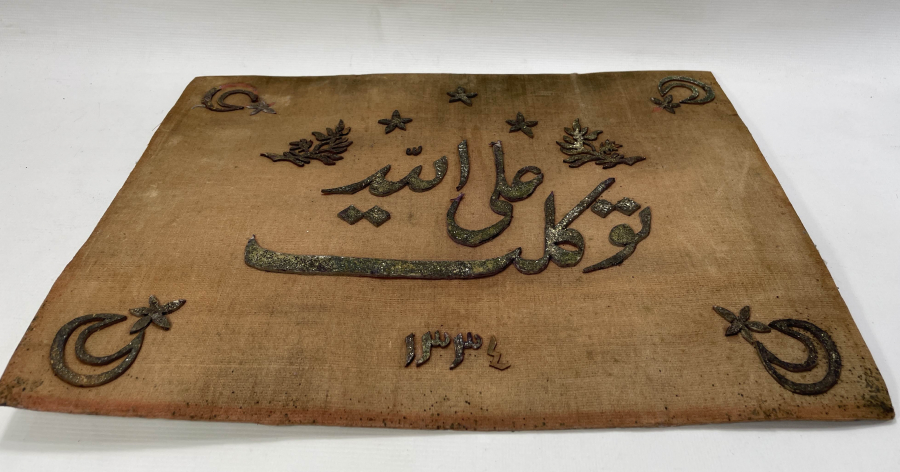 توكلت على الله
١٣٣٤